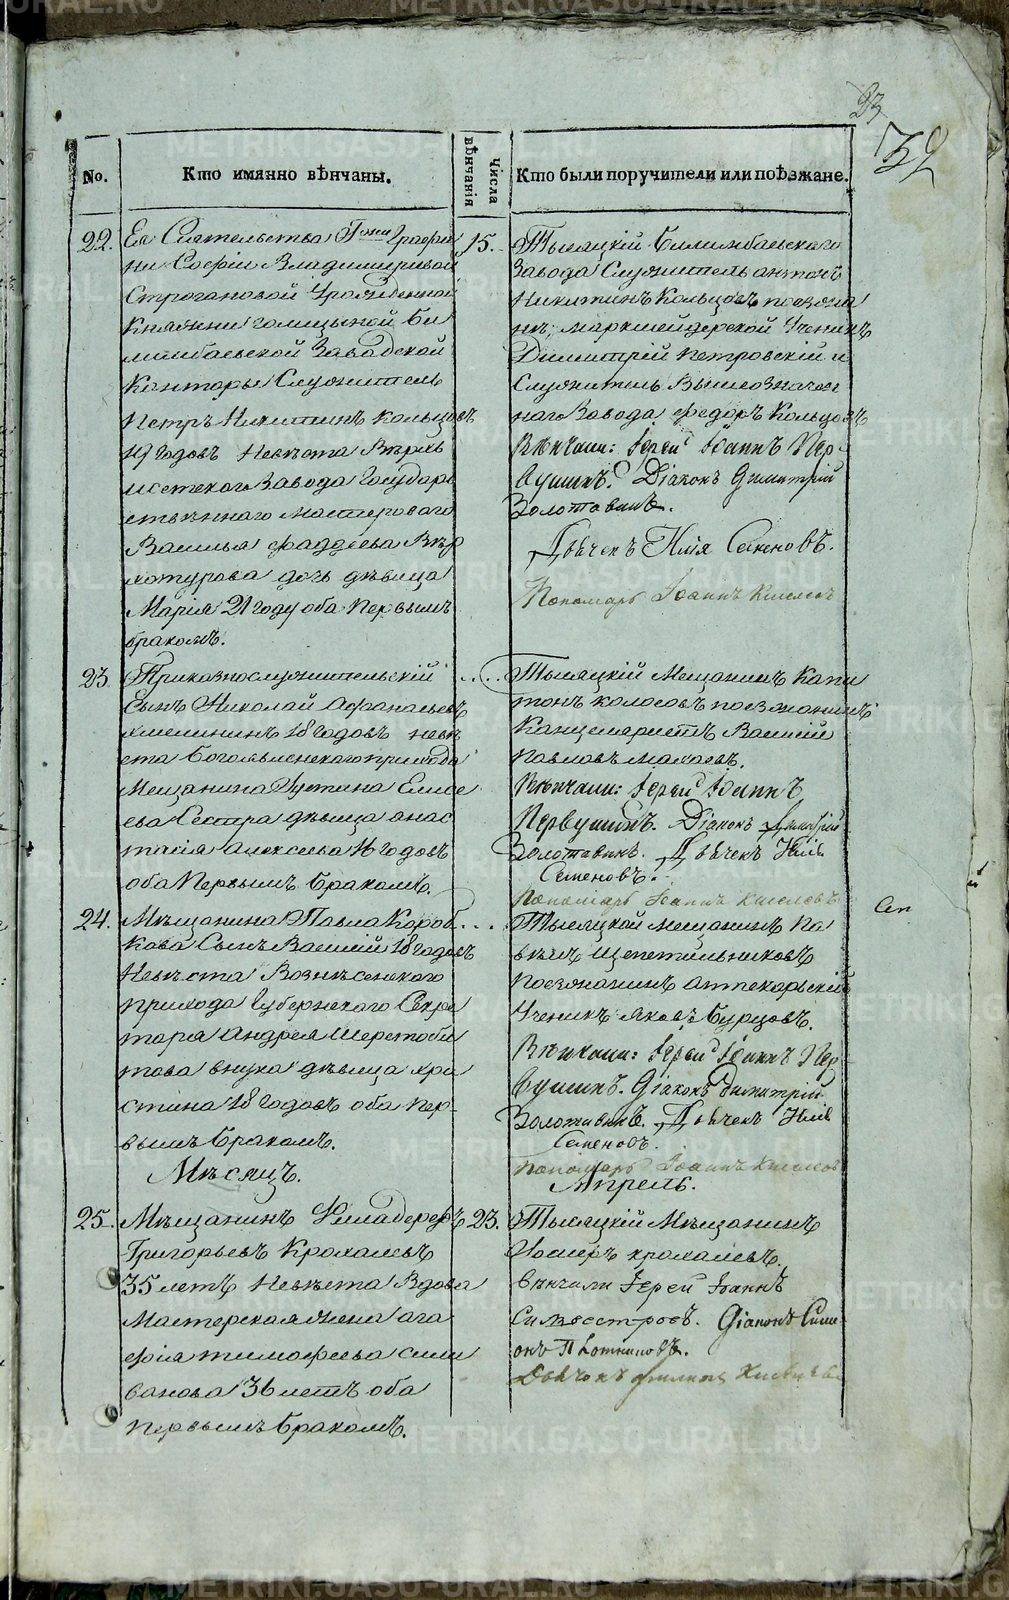 23
32
No.
Кто имянно вѣнчаны.
Числа вѣнчанія
Кто были поручители или поѣзжане.
22.
Ея Сіятельства Гжи Графи
ни Софіи Владимировой
Строгановой Урожденной
Княжни Голицыной Би
лимбаевской Заводской
Канторы Служитель
Петръ Никитинъ Кольцовъ
19 годовъ Невѣста Верхъ
исетскаго Завода Государ
ственнаго мастероваго
Василья Фаддеева Вер
хотурова дочь дѣвица
Марія 21 году оба первымъ
бракомъ.
15.
Тысяцкій Билимбаевскаго
Завода Служитель
Никитинъ Кольцовъ поезжа
не; маркшейдерской Ученикъ
Димитрій Петровскій и
Служитель Вышеозначен
наго Завода Федоръ Кольцовъ
Вѣнчали: Іерей Іоаннъ Пер
вушинъ. Діаконъ Димитрій
Золотавинъ.
Дьячекъ Илія Семеновъ.
Пономарь Іоаннъ Киселев
23.
Приказнослужительскій
Сынъ Николай Афанасьевъ
Хмелининъ 18 годовъ невѣ
ста Богоявленскаго прихода
Мещанина Устина Елисе
ева Сестра дѣвица Анас
тасія Алексеева 16 годовъ
оба Первымъ бракомъ.
....
Тысяцкій Мещанинъ Капи
тонъ Колосовъ поезжанинъ
Канцеляристъ Василій
Павловъ
Вѣнчали: Іерей Іоаннъ
Первушинъ. Діаконъ Димитрій
Золотавинъ. Дьячекъ Илія
Семеновъ.
Пономарь Іоаннъ Киселевъ
24.
Мѣщанина Павла Короб
кова Сынъ Василій 18 годовъ
Невѣста Вознесенскаго
прихода Губернскаго Секре
таря Андрея Шерстоби
това внука дѣвица Хри
стина 18 годовъ оба пер-
вымъ бракомъ.
...
Тысяцкой мещанинъ Па
велъ Щепетильниковъ
поезжанинъ Аптекарьскій
Ученикъ Яковъ Бурцовъ.
Вѣнчали: Іерей Іоаннъ Пер
вушинъ. Діаконъ Димитрій
Золотавинъ. Дьячекъ Илія
Семеновъ.
Пономарь Іоаннъ Киселев
Мѣсяцъ.
Апрель.
25.
Мѣщанинъ
Григорьевъ Крохалевъ
35 летъ Невѣста Вдова
Мастерская жена Ага
фія Тимофеева Сели
ванова 36 летъ оба
первымъ бракомъ.
23.
Тысяцкій Мѣщанинъ
Крохалевъ.
Вѣнчали Іерей Іоаннъ
Сильвестровъ. Діаконъ Симе
онъ Плотниковъ.
Дьячекъ
METRIKI.GASO-URAL.RU